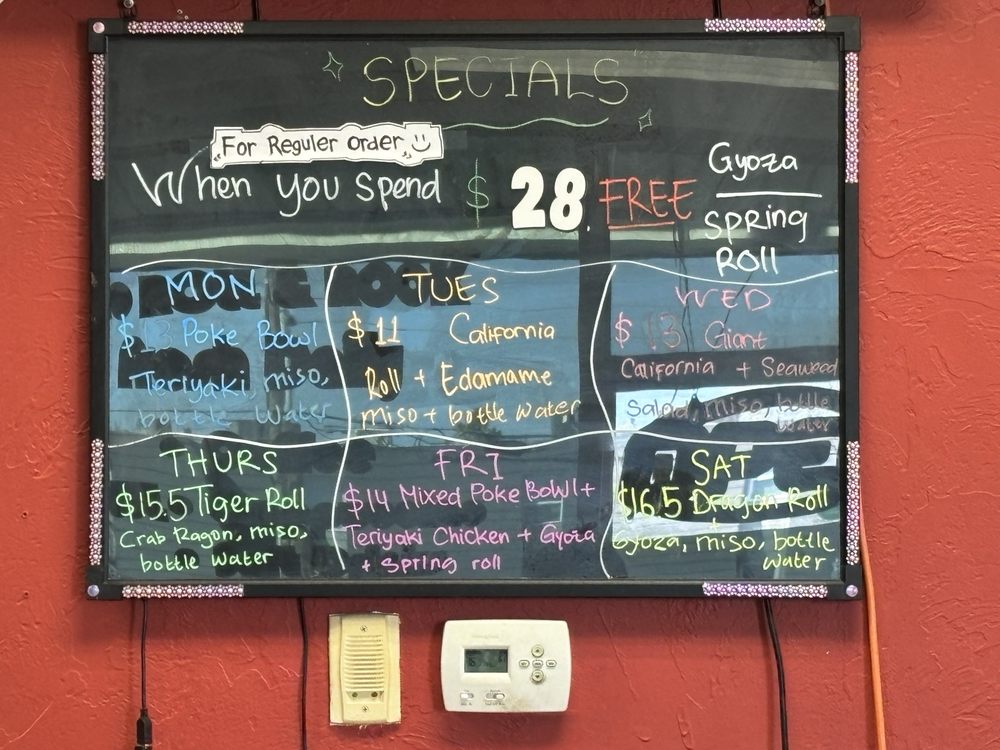 SPECIALS
For Reguler Order
When you spend $ 28. FREE
Gyoza
Spring
Roll
MON
$13 Poke Bowl
Teriyaki, miso,
bottle water
TUES
$11 California
Roll + Edamame
miso + bottle water
WED
$13 Giant
California + Seaweed
Salad, miso, bottle
water
THURS
$15.5 Tiger Roll
Crab Ragon, miso,
bottle water
FRI
$14 Mixed Poke Bowl +
Teriyaki Chicken + Gyoza
+ spring roll
SAT
$16.5 Dragon Roll
+
Gyoza, miso, bottle
water